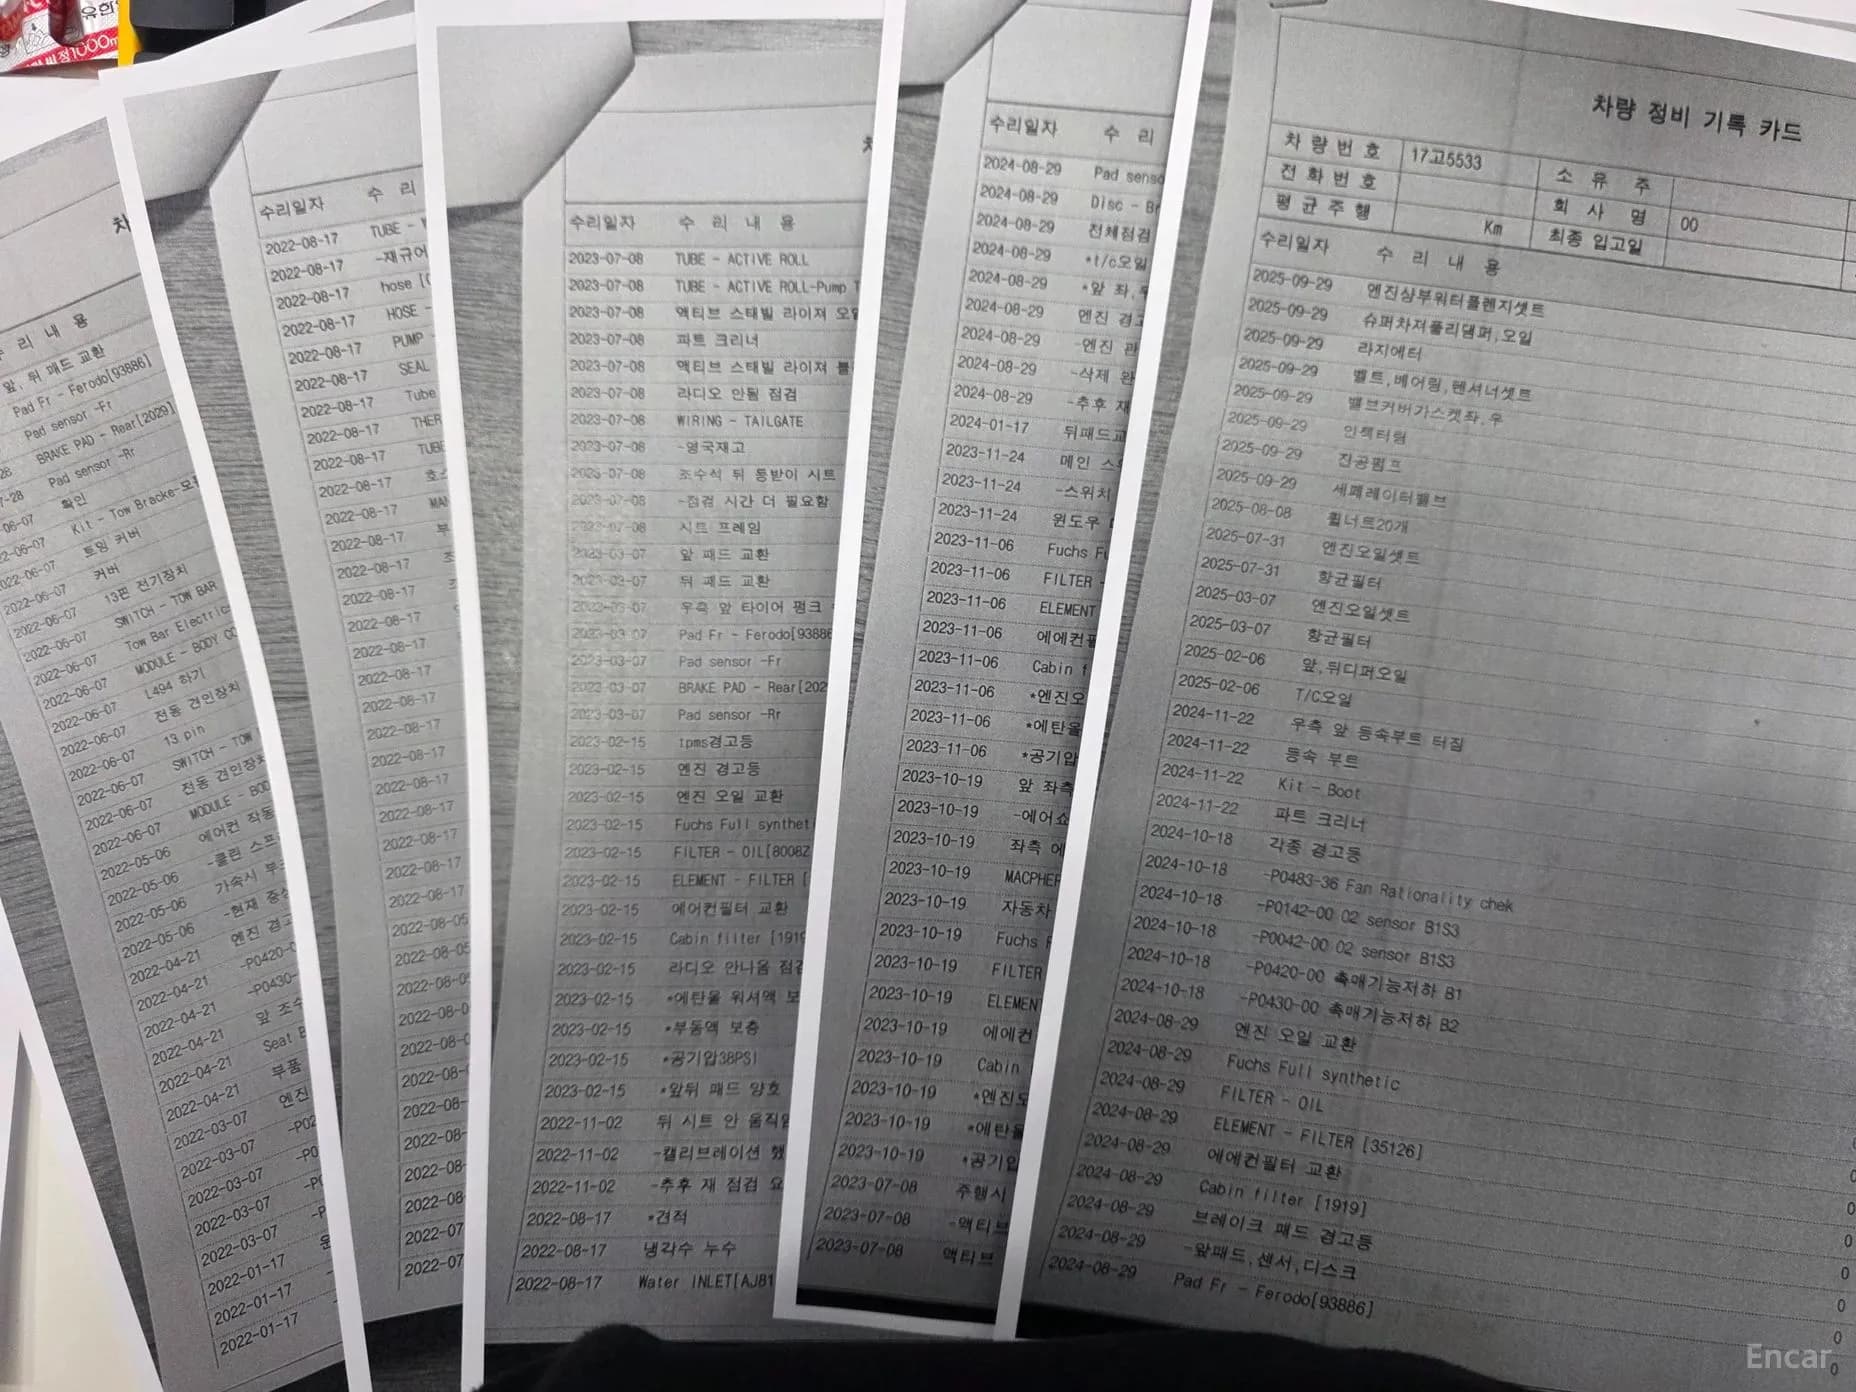 유한
1000m
수 리 내 용
앞, 뒤 패드 교환
Pad Fr - Ferodo[93886]
Pad sensor -Fr
BRAKE PAD - Rear[2029]
Pad sensor -Rr
06-07 확인
2-06-07 Kit - Tow Bracke-모
2022-06-07 토잉 커버
2022-06-07 커버
2022-06-07 13핀 전기장치
2022-06-07 SWITCH - TOW BAR
2022-06-07 Tow Bar Electric
2022-06-07 MODULE - BODY CO
2022-06-07 L494 하기
2022-06-07 전동 견인장치
2022-06-07 13 pin
2022-06-07 SWITCH - TOW
2022-06-07 전동 견인장치
2022-06-07 MODULE - BOD
2022-05-06 에어컨 작동
2022-05-06 -쿨린 스프
2022-05-06 가속시 부
2022-05-06 -현재 증상
2022-04-21 엔진 경고
2022-04-21 -P0420-0
2022-04-21 -P0430-
2022-04-21 앞 조수
2022-04-21 Seat B
2022-04-21 부품
2022-03-07 엔진
2022-03-07 -P02
2022-03-07 -P0
2022-03-07 -P
2022-03-07 -P
2022-01-17
2022-01-17
2022-01-17
수리일자 수 리
2022-08-17 TUBE -
2022-08-17 -재규어
2022-08-17 hose
2022-08-17 HOSE -
2022-08-17 PUMP -
2022-08-17 SEAL
2022-08-17 Tube
2022-08-17 THER
2022-08-17 TUBE
2022-08-17 호스
2022-08-17 MAN
2022-08-17
2022-08-17
2022-08-17
2022-08-17
2022-08-17
2022-08-17
2022-08-17
2022-08-17
2022-08-17
2022-08-17
2022-08-17
2022-08-17
2022-08-17
2022-08-05
2022-08-05
2022-08-0
2022-08-0
2022-08-0
2022-08-
2022-08-
2022-08-
2022-08
2022-08
2022-07
2022-07
수리일자 수 리 내 용
2023-07-08 TUBE - ACTIVE ROLL
2023-07-08 TUBE - ACTIVE ROLL-Pump T
2023-07-08 액티브 스태빌 라이져 오일
2023-07-08 파트 크리너
2023-07-08 액티브 스태빌 라이져 블
2023-07-08 라디오 안됨 점검
2023-07-08 WIRING - TAILGATE
2023-07-08 -영국재고
2023-07-08 조수석 뒤 등받이 시트
2023-07-08 -점검 시간 더 필요함
2023-07-08 시트 프레임
2023-03-07 앞 패드 교환
2023-03-07 뒤 패드 교환
2023-03-07 우측 앞 타이어 펑크
2023-03-07 Pad Fr - Ferodo[93886
2023-03-07 Pad sensor -Fr
2023-03-07 BRAKE PAD - Rear[202
2023-03-07 Pad sensor -Rr
2023-02-15 tpms경고등
2023-02-15 엔진 경고등
2023-02-15 엔진 오일 교환
2023-02-15 Fuchs Full synthet
2023-02-15 FILTER - OIL[8008Z
2023-02-15 ELEMENT - FILTER [
2023-02-15 에어컨필터 교환
2023-02-15 Cabin filter [1919
2023-02-15 라디오 안나옴 점검
2023-02-15 *에탄올 워셔액 보
2023-02-15 *부동액 보충
2023-02-15 *공기압38PSI
2023-02-15 *앞뒤 패드 양호
2022-11-02 뒤 시트 안 움직임
2022-11-02 -캘리브레이션 했
2022-11-02 -추후 재 점검 요
2022-08-17 *견적
2022-08-17 냉각수 누수
2022-08-17 Water INLET[AJ81
수리일자 수 리
2024-08-29 Pad senso
2024-08-29 Disc - Br
2024-08-29 전체점검
2024-08-29 *t/c오일
2024-08-29 *앞 좌,
2024-08-29 엔진 경고
2024-08-29 -엔진 관
2024-08-29 -삭제 완
2024-08-29 -추후 재
2024-01-17 뒤패드교
2023-11-24 메인 스위
2023-11-24 -스위치
2023-11-24 윈도우
2023-11-06 Fuchs Fu
2023-11-06 FILTER -
2023-11-06 ELEMENT
2023-11-06 에에컨필
2023-11-06 Cabin f
2023-11-06 *엔진오
2023-11-06 *에탄올
2023-11-06 *공기압
2023-10-19 앞 좌측
2023-10-19 -에어쇼
2023-10-19 좌측 에
2023-10-19 MACPHER
2023-10-19 자동차
2023-10-19 Fuchs F
2023-10-19 FILTER
2023-10-19 ELEMENT
2023-10-19 에에컨
2023-10-19 Cabin
2023-10-19 *엔진오
2023-10-19 *에탄올
2023-10-19 *공기압
2023-07-08 주행시
2023-07-08 -액티브
2023-07-08 액티브
차량 정비 기록 카드
차 량 번 호 17고5533 소 유 주
전 화 번 호 회 사 명 00
평 균 주 행 Km 최종 입고일
수리일자 수 리 내 용
2025-09-29 엔진상부워터플렌지셋트
2025-09-29 슈퍼차져풀리댐퍼,오일
2025-09-29 라지에터
2025-09-29 벨트,베어링,텐셔너셋트
2025-09-29 밸브커버가스켓좌,우
2025-09-29 인젝터림
2025-09-29 진공펌프
2025-09-29 세퍼레이터밸브
2025-08-08 휠너트20개
2025-07-31 엔진오일셋트
2025-07-31 항균필터
2025-03-07 엔진오일셋트
2025-03-07 항균필터
2025-02-06 앞,뒤디퍼오일
2025-02-06 T/C오일
2024-11-22 우측 앞 등속부트 터짐
2024-11-22 등속 부트
2024-11-22 Kit - Boot
2024-11-22 파트 크리너
2024-10-18 각종 경고등
2024-10-18 -P0483-36 Fan Rationality chek
2024-10-18 -P0142-00 O2 sensor B1S3
2024-10-18 -P0042-00 O2 sensor B1S3
2024-10-18 -P0420-00 촉매기능저하 B1
2024-10-18 -P0430-00 촉매기능저하 B2
2024-08-29 엔진 오일 교환
2024-08-29 Fuchs Full synthetic
2024-08-29 FILTER - OIL
2024-08-29 ELEMENT - FILTER [35126]
2024-08-29 에에컨필터 교환
2024-08-29 Cabin filter [1919]
2024-08-29 브레이크 패드 경고등
2024-08-29 -앞패드,센서,디스크
2024-08-29 Pad Fr - Ferodo[93886]
Encar